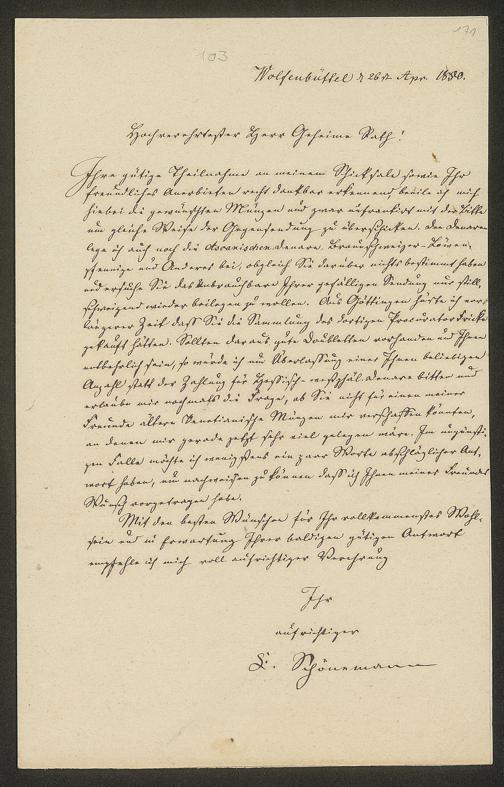 103
171
Wolfenbüttel d 26st. Apr. 1850.
Hochverehrtester Herr Geheime Rath!
Ihre gütige Theilnahme an meinem Schicksale sowie Ihr
freundliches Anerbieten recht dankbar erkennend beeile ich mich
hiebei die gewünschten Münzen und zwar unfrankirt mit der Bitte
um gleiche Weise der Gegensendung zu überschicken. Den Denaren
lege ich auch noch die Ascanischen Denare, Braunschweiger Löwen-
pfennige und Anderes bei, obgleich Sie darüber nichts bestimmt haben
und ersuche Sie das Unbrauchbare Ihrer gefälligen Sendung nur still-
schweigend wieder beilegen zu wollen. Aus Göttingen hörte ich vor
längerer Zeit daß Sie die Sammlung des dortigen Procurator
gekauft hätten. Sollten daraus gute Doubletten vorhanden und Ihnen
entbehrlich sein, so werde ich um Überlassung einer Ihnen beliebigen
Anzahl statt der Zahlung für Hessisch-westphäl. Denare bitten und
erlaube mir nochmals die Frage, ob Sie nicht für einen meiner
Freunde ältere Venetianische Münzen mir verschaffen könnten,
an denen mir gerade jetzt sehr viel gelegen wäre. Im ungünsti-
gen Falle möchte ich wenigstens ein paar Worte abschläglicher Ant-
wort haben, um nachweisen zu können daß ich Ihnen meines Freundes
Wunsch vorgetragen habe.
Mit den besten Wünschen für Ihr vollkommenstes Wohl-
sein und in Erwartung Ihrer baldigen gütigen Antwort
empfehle ich mich voll aufrichtiger Verehrung
Ihr
aufrichtiger
C. Schönemann